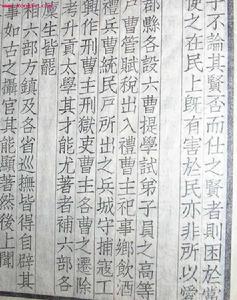 子不論其賢否而仕之賢者則困於常
在民上旣有害於民亦非所以愛
郡縣各設六曹提學試弟子員之高等
戶曹管賦稅出入禮曹主祀事鄉飲酒
禮兵曹統民戶所出之兵城守捕寇工
興作刑曹主刑獄吏曹主各曹之遷除
考升貢太學其才能尤著者補六部各
廩生皆罷
相六部方鎮及各省巡撫皆得自辟其
事如古之攝官其能顯著然後上聞